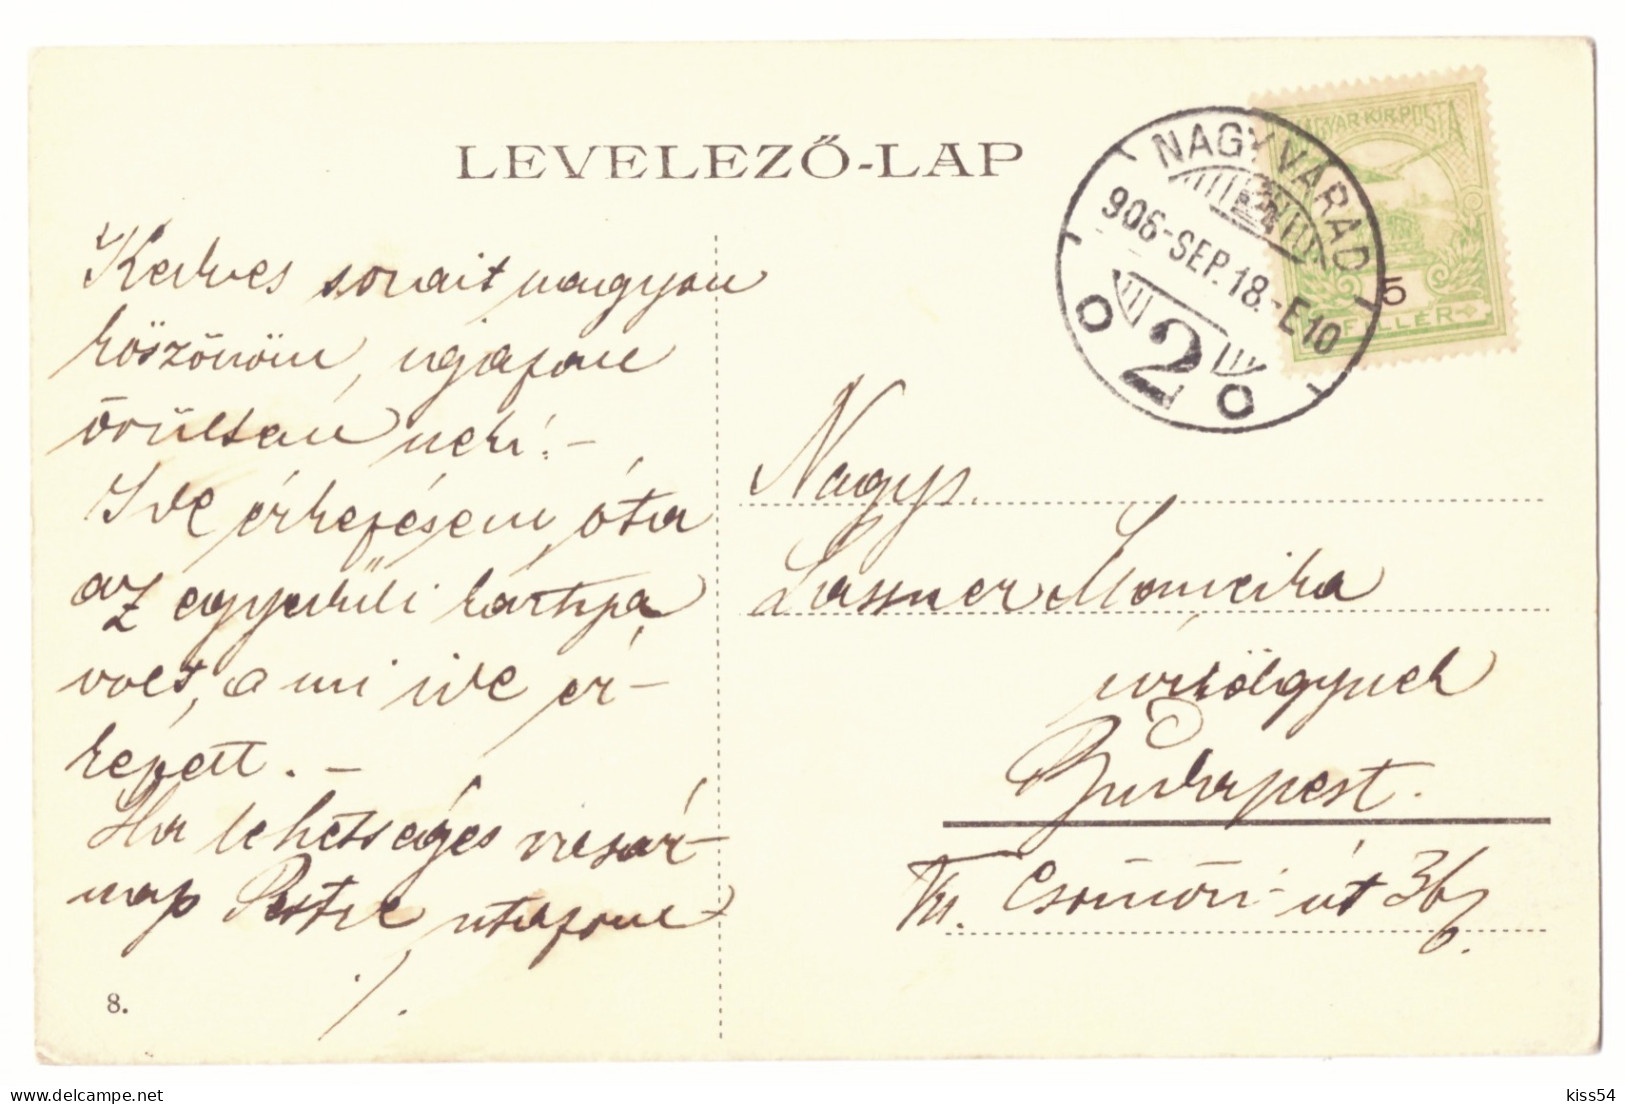 LEVELEZŐ-LAP
MAGYAR KIR. POSTA
NAGYVÁRAD
906-SEP.18.-E10
2
5
FILLÉR
Kedves sorait nagyon
köszönöm,
örültem neki! –
Ide érkezésem óta
az egyedüli kártya
volt, a mi ide ér-
kezett. –
Ha lehetséges vasár-
nap Pestre utazom
8.
Nagys.
Lassner
úrhölgynek
Budapest.
Csömöri-út 36
kiss54